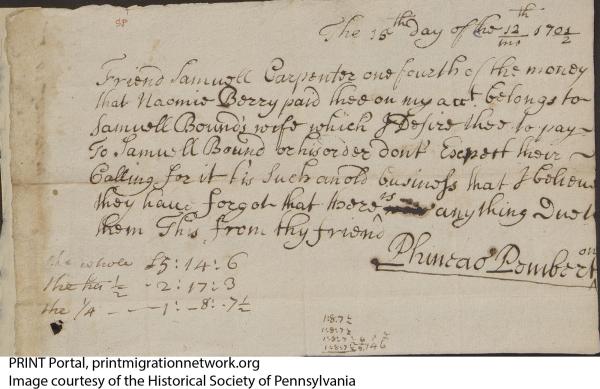 The 15th day of the 12th/mo 1701/2
Friend Samuell Carpenter one fourth of the money
that Naomie Berry paid thee on my acct belongs to
Samuell Bound's wife which I Desire thee to pay
To Samuell Bound or his order don't Expect their
Calling for it t'is Such an old business that I believe
they have forgot that there is any thing Due to
them This from thy friend
Phineas Pemberton
the whole £5:14:6
the 1/2 - 2:17:3
the 1/4 - - - 1: - 8: - 7 1/2
1:8:7 1/2
1:8:7 1/2
PRINT Portal, printmigrationnetwork.org
Image courtesy of the Historical Society of Pennsylvania